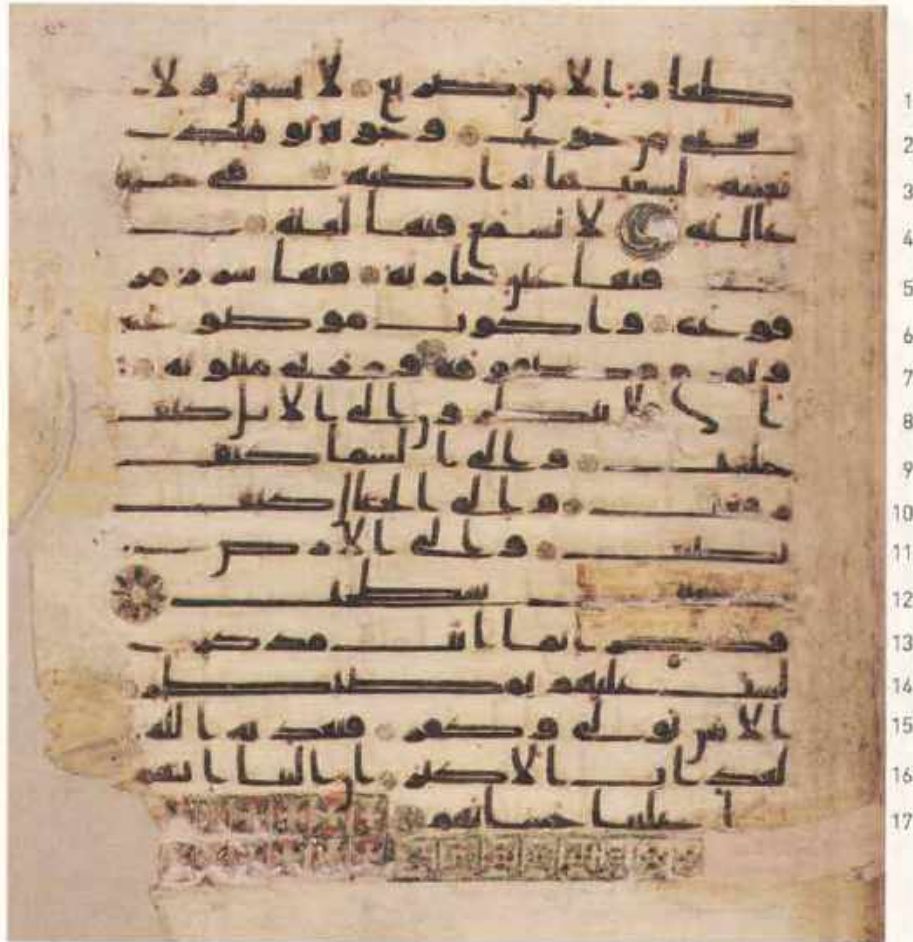 طعام الا من ضريع لا يسمن ولا 1
يغني من جوع وجوه يومئذ 2
نعمة لسعيها راضية في جنة 3
عالية لا تسمع فيها لغية 4
فيها عين جارية فيها سرر مر 5
فوعة واكواب موضوعة 6
ونمرق مصفوفة وزربي مبثوثة 7
افلا ينظرون الى الابل كيف 8
خلقت والى السما كيف 9
رفعت والى الجبال كيف 10
نصبت والى الارض 11
كيف سطحت 12
فذكر انما انت مذكر 13
لست عليهم بمصيطر 14
الا من تولى وكفر فيعذبه الله 15
العذاب الاكبر ان الينا ايابهم 16
علينا حسابهم 17